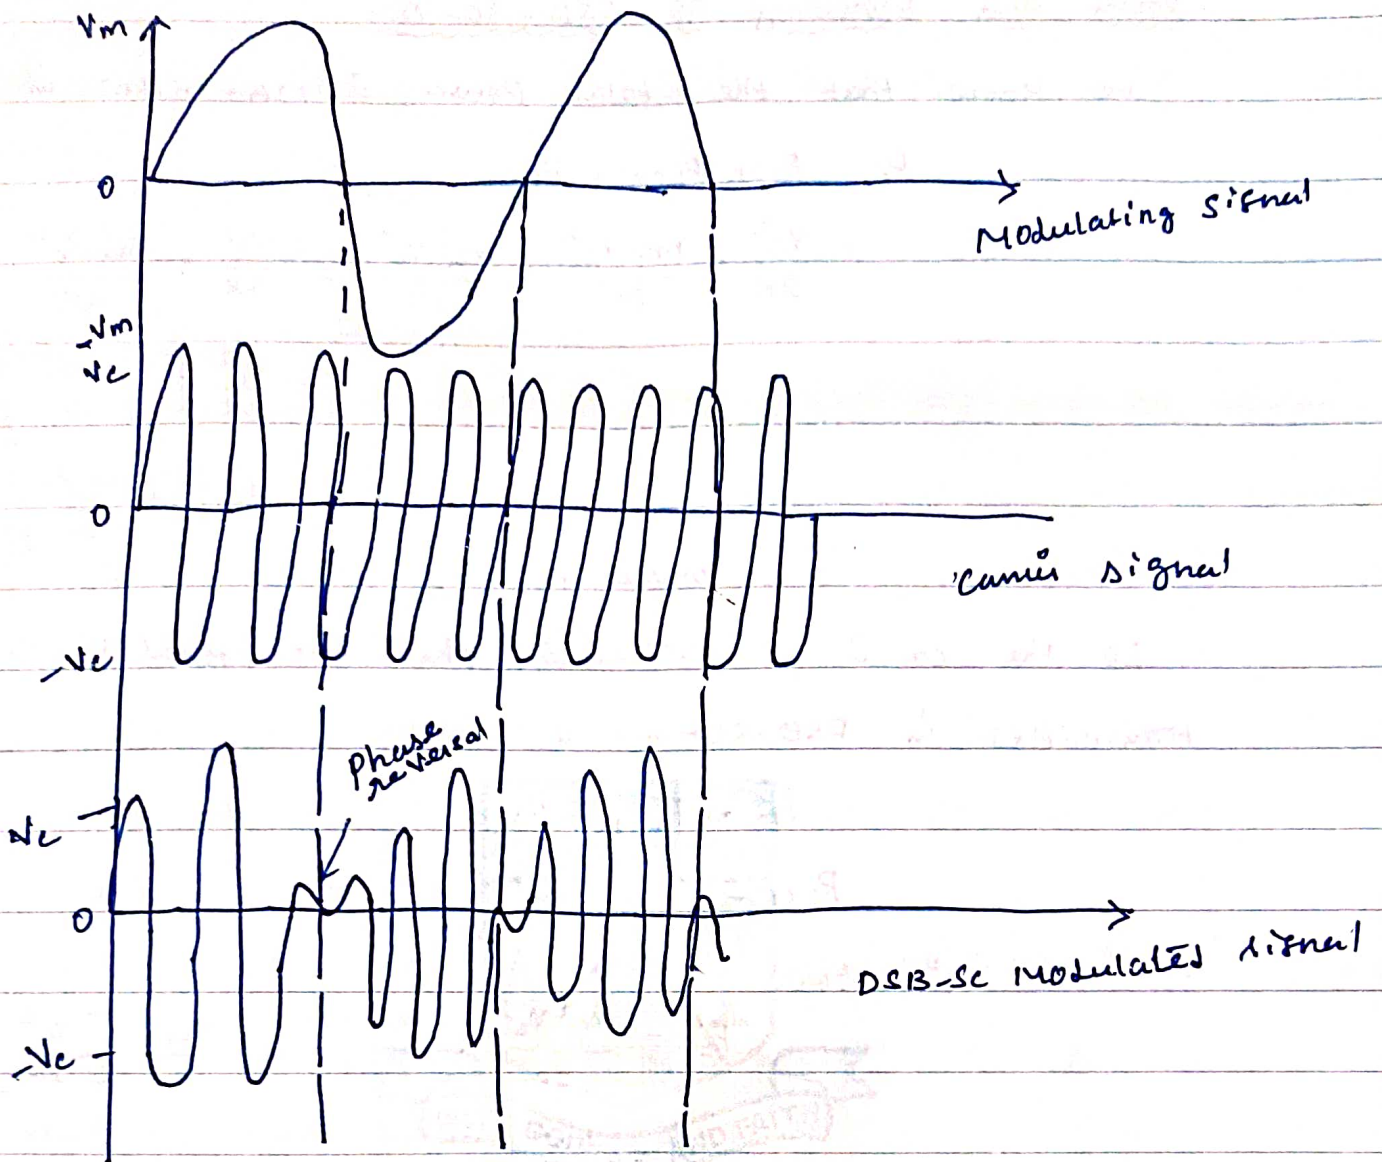 Vm
0
Modulating signal
-Vm
Vc
0
carrier signal
-Vc
Phase
reversal
Vc
0
DSB-SC Modulated signal
-Vc